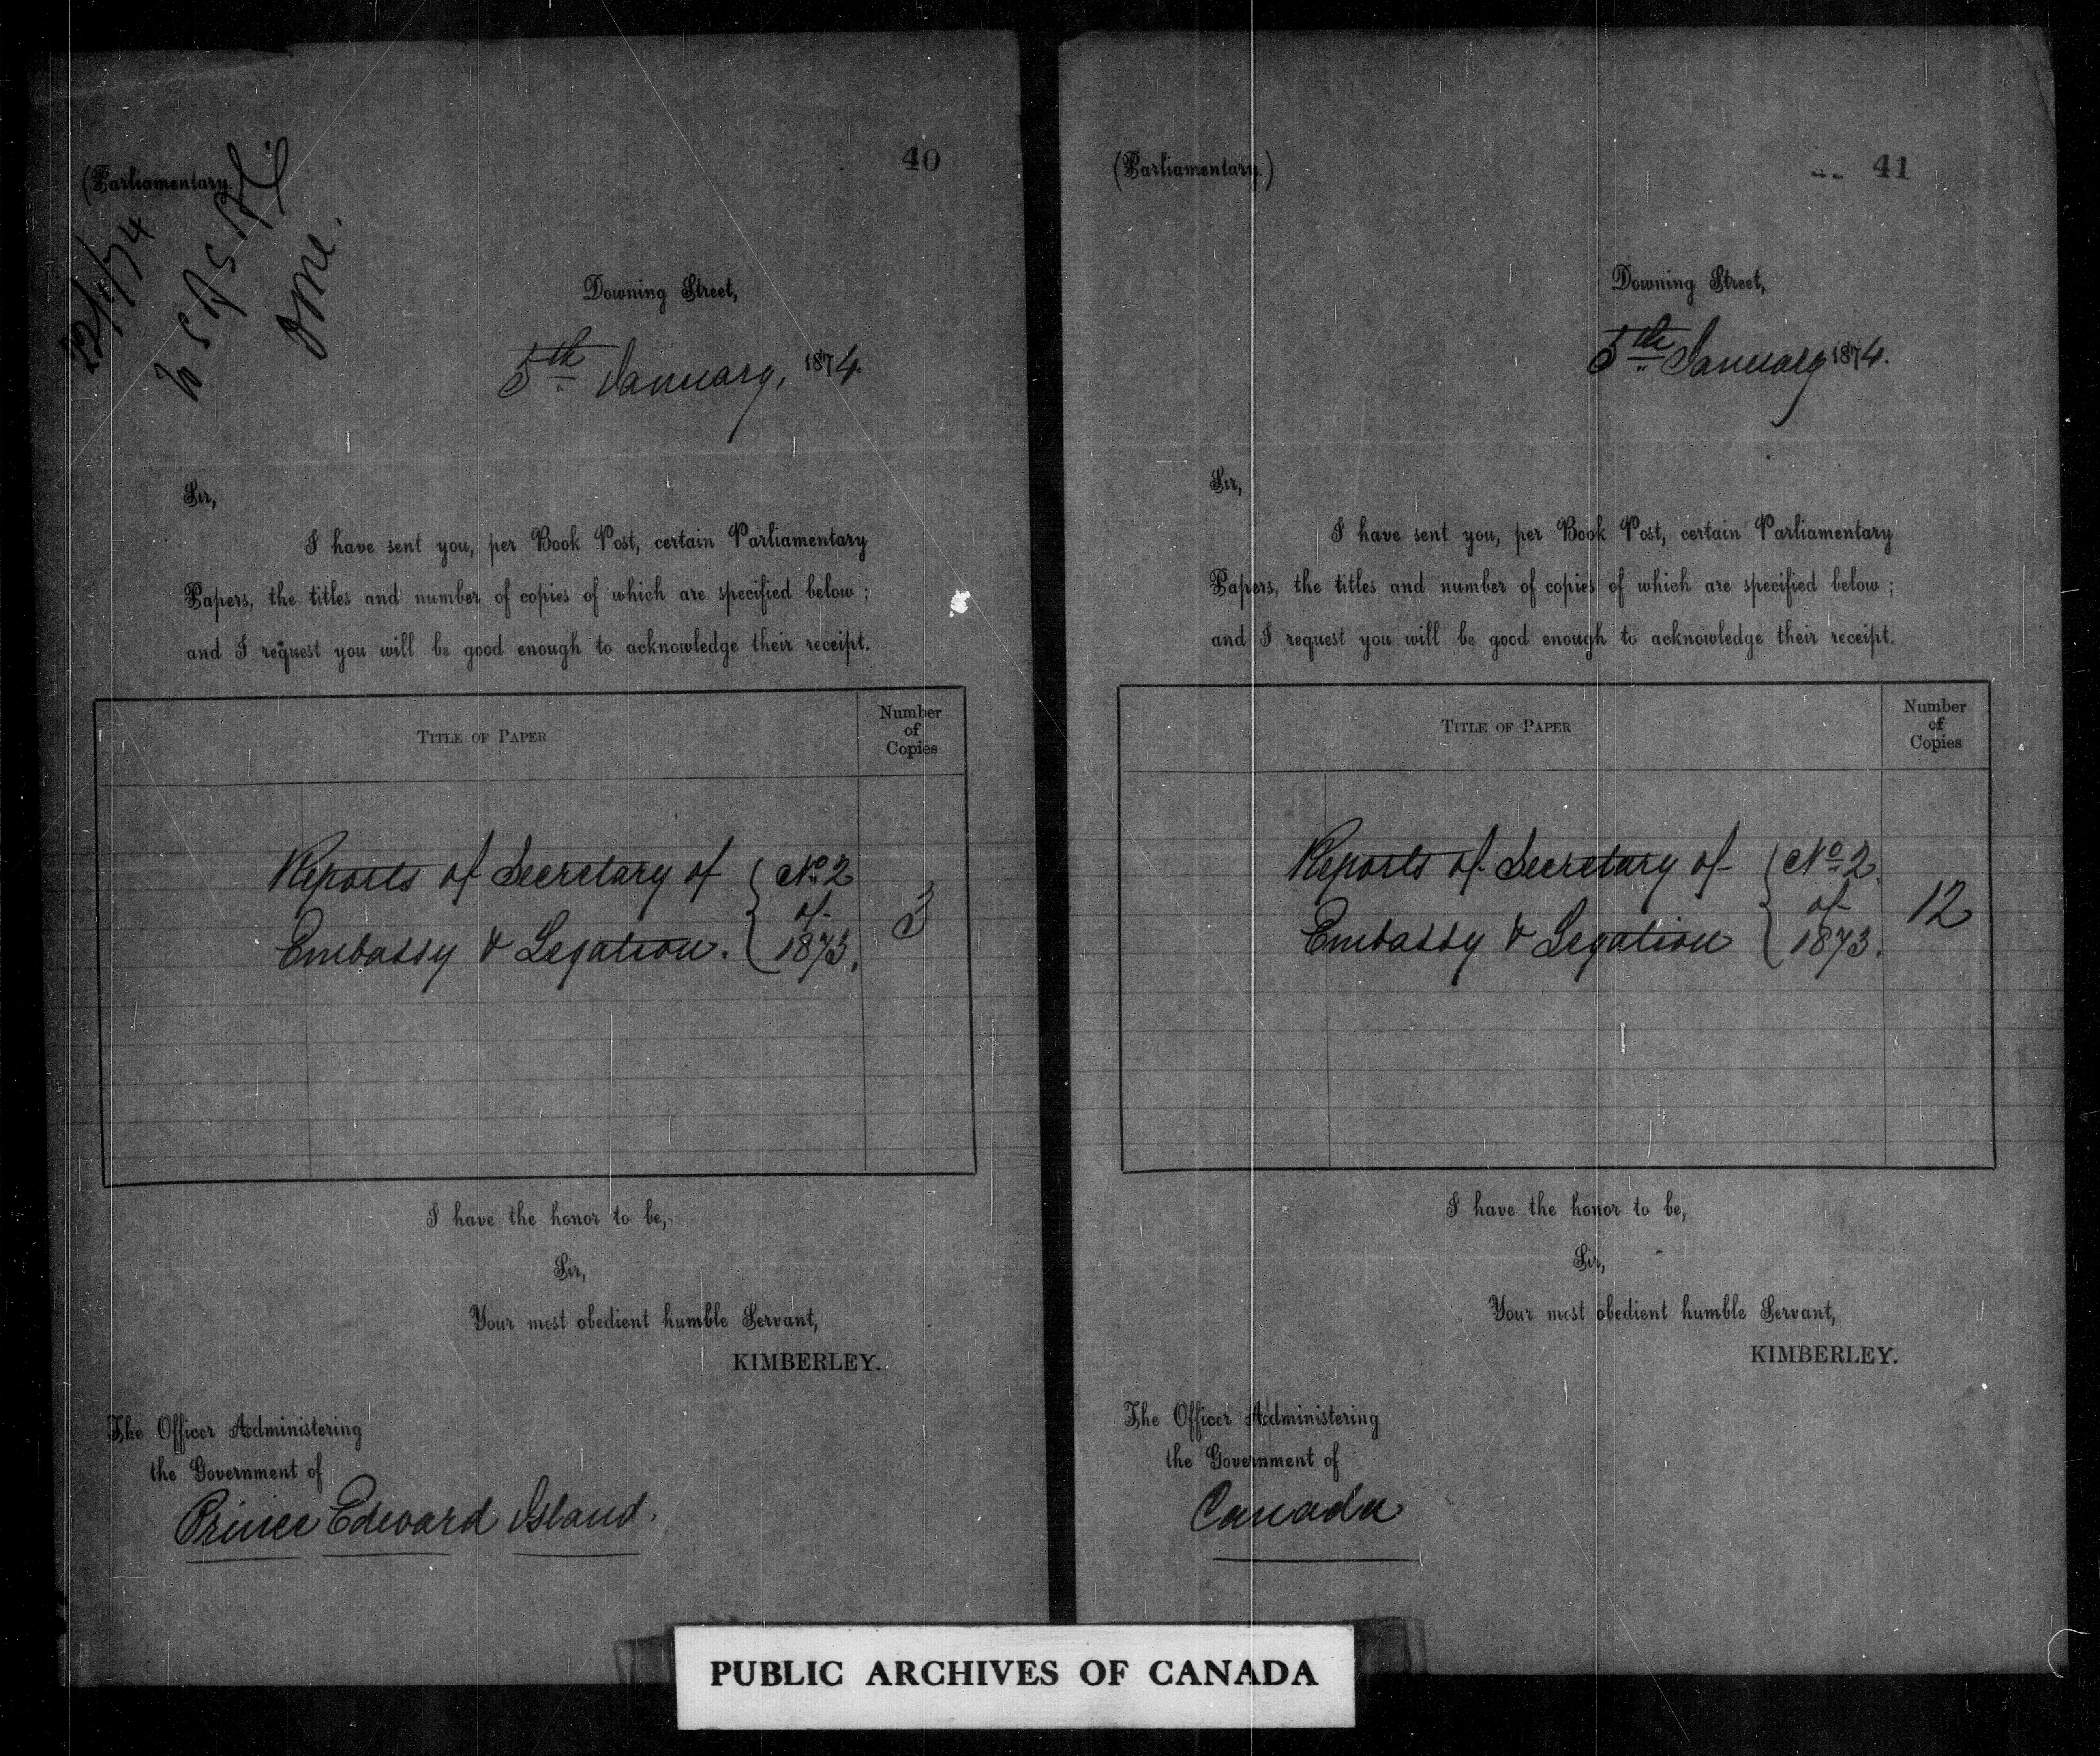 40
(Parliamentary.
22/1/74
Downing Street,
5th January, 1874.
Sir,
I have sent you, per Book Post, certain Parliamentary
Papers, the titles and number of copies of which are specified below;
and I request you will be good enough to acknowledge their receipt.
TITLE OF PAPER
Number
of
Copies
Reports of Secretary of
Embassy & Legation.
No 2
of
1873.
3
I have the honor to be,
Sir,
Your most obedient humble Servant,
KIMBERLEY.
The Officer Administering
the Government of
Prince Edward Island.
41
(Parliamentary.)
Downing Street,
5th January 1874.
Sir,
I have sent you, per Book Post, certain Parliamentary
Papers, the titles and number of copies of which are specified below;
and I request you will be good enough to acknowledge their receipt.
TITLE OF PAPER
Number
of
Copies
Reports of Secretary of
Embassy & Legation
No 2
of
1873.
12
I have the honor to be,
Sir,
Your most obedient humble Servant,
KIMBERLEY.
The Officer Administering
the Government of
Canada
PUBLIC ARCHIVES OF CANADA